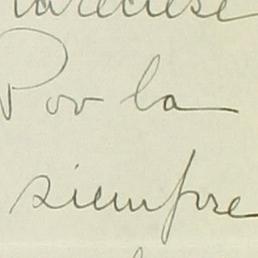 Por la
siempre